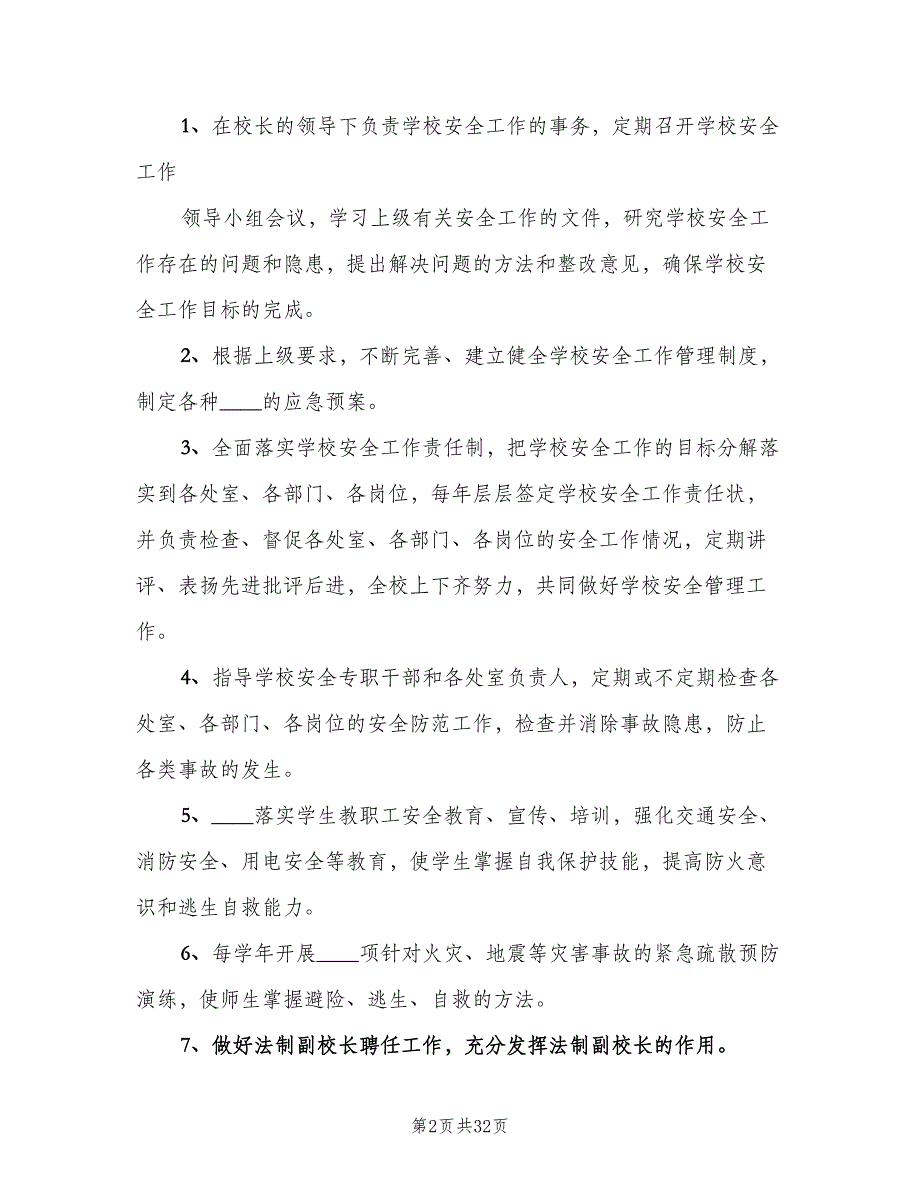 1、在校长的领导下负责学校安全工作的事务，定期召开学校安全
工作
领导小组会议，学习上级有关安全工作的文件，研究学校安全工
作存在的问题和隐患，提出解决问题的方法和整改意见，确保学校安
全工作目标的完成。
2、根据上级要求，不断完善、建立健全学校安全工作管理制度，
制定各种____的应急预案。
3、全面落实学校安全工作责任制，把学校安全工作的目标分解落
实到各处室、各部门、各岗位，每年层层签定学校安全工作责任状，
并负责检查、督促各处室、各部门、各岗位的安全工作情况，定期讲
评、表扬先进批评后进，全校上下齐努力，共同做好学校安全管理工
作。
4、指导学校安全专职干部和各处室负责人，定期或不定期检查各
处室、各部门、各岗位的安全防范工作，检查并消除事故隐患，防止
各类事故的发生。
5、____落实学生教职工安全教育、宣传、培训，强化交通安全、
消防安全、用电安全等教育，使学生掌握自我保护技能，提高防火意
识和逃生自救能力。
6、每学年开展____项针对火灾、地震等灾害事故的紧急疏散预防
演练，使师生掌握避险、逃生、自救的方法。
7、做好法制副校长聘任工作，充分发挥法制副校长的作用。
第2页共32页